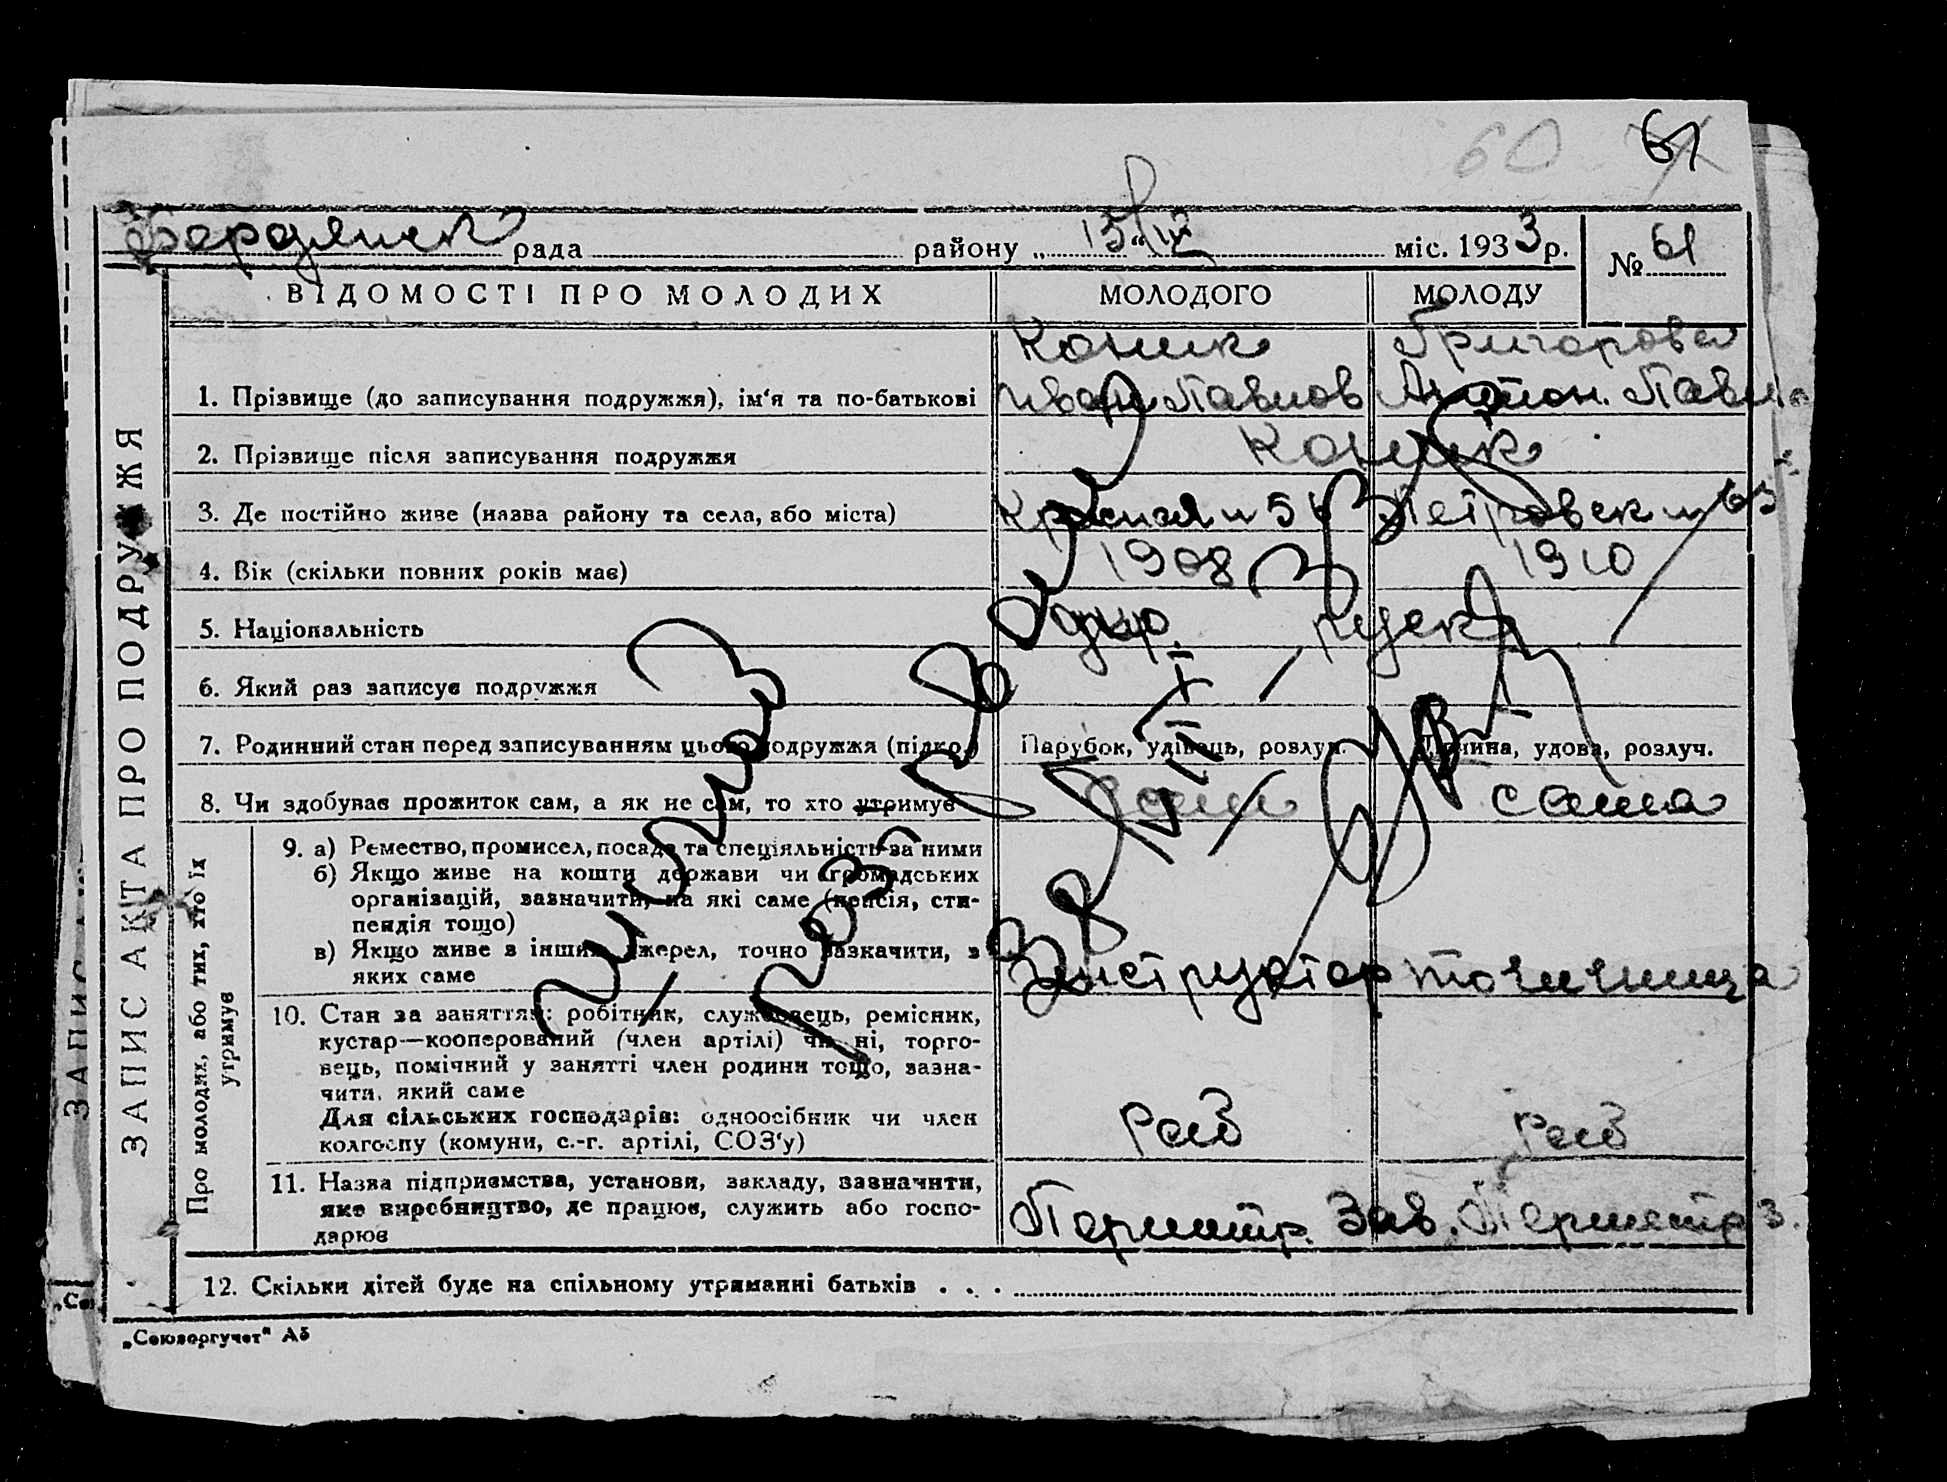 60 61
Бердянск рада району „15“ міс. 1933 р. № 61
ВІДОМОСТІ ПРО МОЛОДИХ МОЛОДОГО МОЛОДУ
Коник Григорова
1. Прізвище (до записування подружжя), ім'я та по-батькові Иван Павлов Антон. Павло
2. Прізвище після записування подружжя Коник
3. Де постійно живе (назва району та села, або міста) Красная 5 Петровск 63
4. Вік (скільки повних років має) 1908 1910
5. Національність укр. русск
6. Який раз записує подружжя
7. Родинний стан перед записуванням цього подружжя (підкр.) Парубок, удівець, розлуч. Дівчина, удова, розлуч.
8. Чи здобуває прожиток сам, а як не сам, то хто утримує сам сама
9. а) Ремество, промисел, посада та спеціяльність за ними
б) Якщо живе на кошти держави чи громадських
організацій, зазначити, на які саме (пенсія, сти-
пендія тощо)
в) Якщо живе з інших джерел, точно зазначити, з
яких саме Инструктор точильница
10. Стан за заняттям: робітник, службовець, ремісник,
кустар—кооперований (член артілі) чи ні, торго-
вець, помічний у занятті член родини тощо, зазна-
чити, який саме
Для сільських господарів: одноосібник чи член
колгоспу (комуни, с.-г. артілі, СОЗ'у) Раб Раб
11. Назва підприємства, установи, закладу, зазначити,
яке виробництво, де працює, служить або госпо-
дарює Пермотр. Зав. Перметр з.
12. Скільки дітей буде на спільному утриманні батьків . . .
ЗАПИС АКТА ПРО ПОДРУЖЖЯ
Про молодих, або тих, хто їх
утримує
„Союзоргучет“ А5